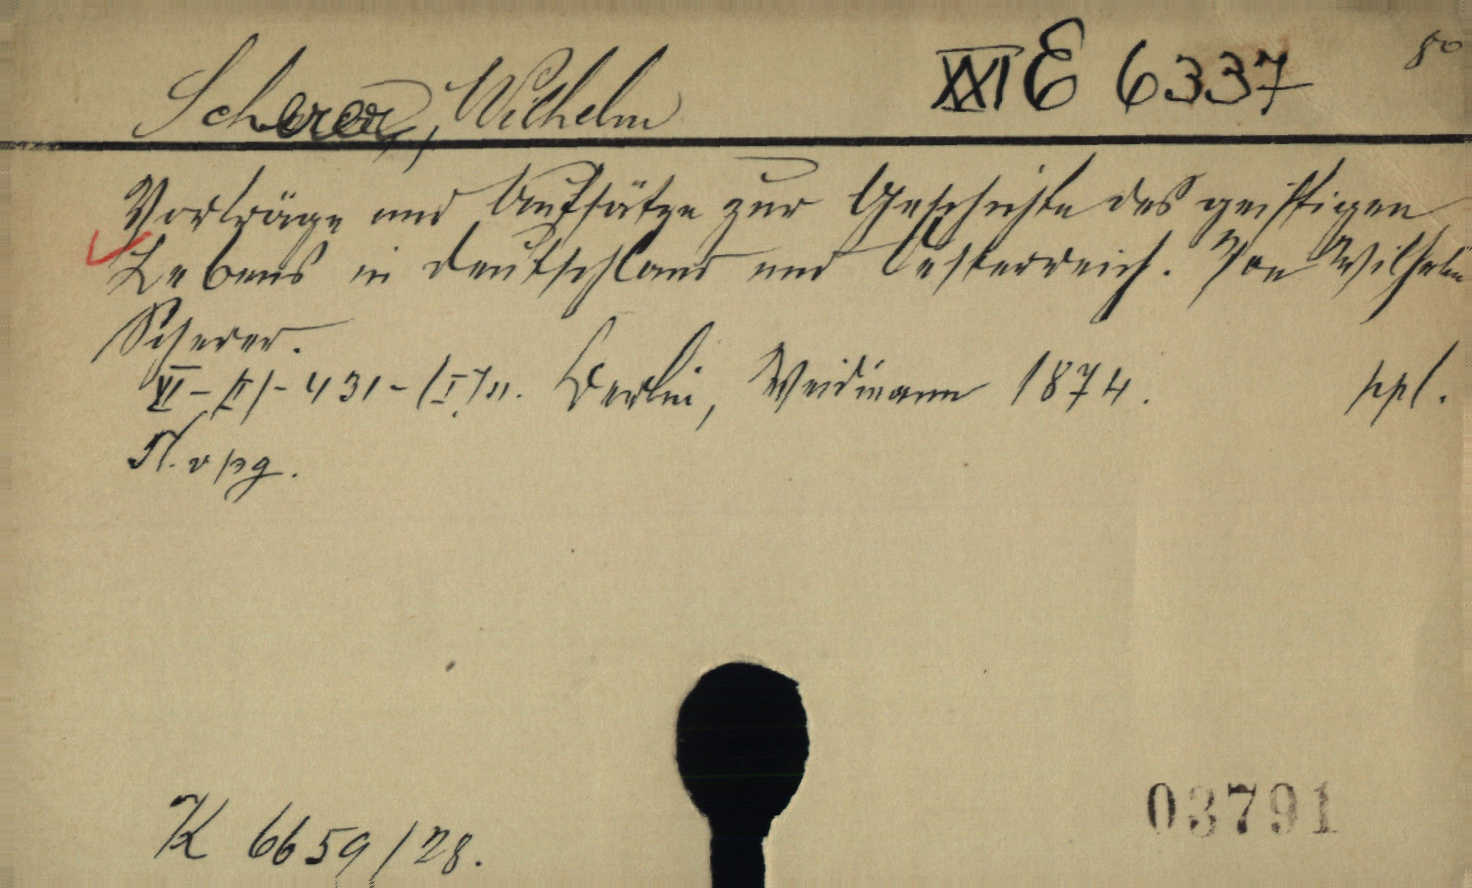 Scherer, Wilhelm XXI E 6337 8°
Vorträge und Aufsätze zur Geschichte des geistigen
Lebens in Deutschland und Oesterreich. Von Wilhelm
Scherer.
VI-(II)-431-(I) Berlin, Weidmann 1874. ppl.
K 6659/28.
03791